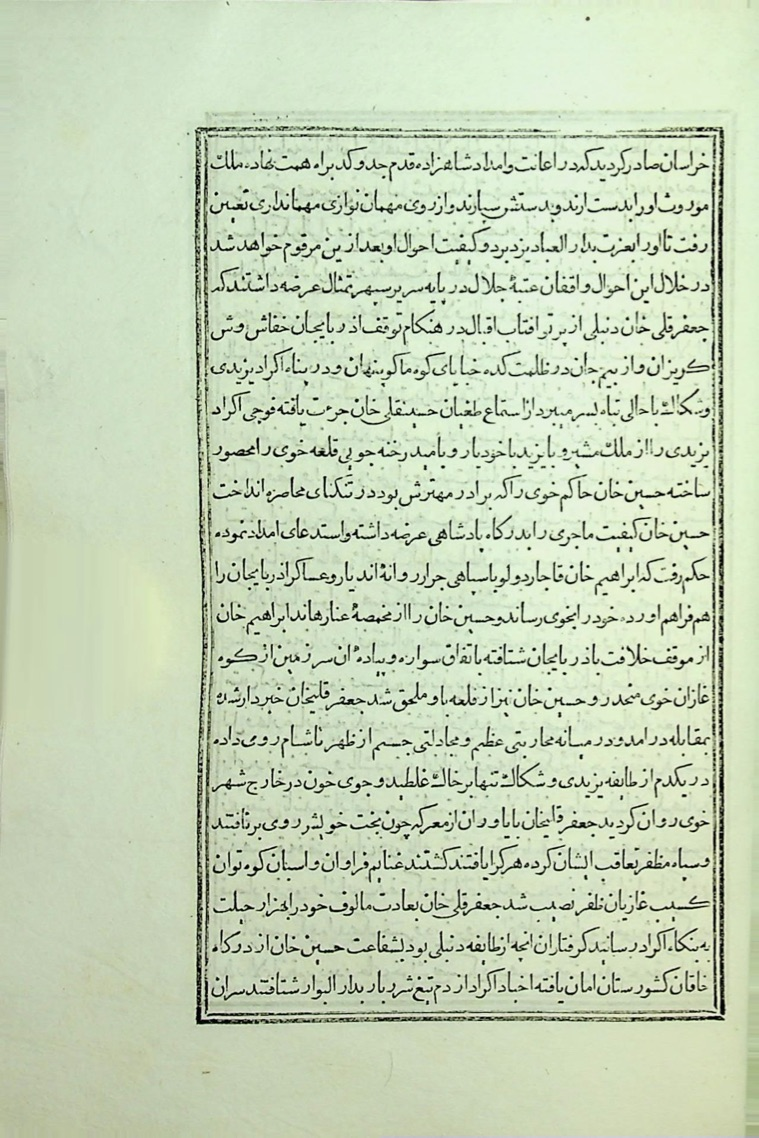 خراسان صادر کردید که در اعانت و امداد شاهزاده قدم جد و کد براه همت نهاده ملک
موروث او را بدست ارند و بدستش سپارند و از روی مهمان نوازی مهمانداری تعیین
رفت تا او را بعزت بدار العباد یزد برد و کیفیت احوال او بعد ازین مرقوم خواهد شد
در خلال این احوال واقفان عتبهٔ جلال در پایه سریر سپهر تمثال عرضه داشتند که
جعفر قلی خان دنبلی از پرتو افتاب اقبال در هنکام توقف اذربایجان خفاش وش
کریزان و از بیم جان در ظلمت کده خبایای کوه ماکو پنهان و در پناه اکراد یزیدی
و شکاک با حالی تباه بسر میبرد از استماع طغیان حسینقلی خان جرءت یافته فوجی اکراد
یزیدی را از ملک مشیر و بایزید با خود یار و بامید رخنه جویی قلعه خوی را محصور
ساخته حسین خان حاکم خوی را که برادر مهترش بود در تنکنای محاصره انداخت
حسین خان کیفیت ماجری را بدرکاه پادشاهی عرضه داشته و استدعای امداد نموده
حکم رفت که ابراهیم خان قاجار دولو با سپاهی جرار روانهٔ اندیار و عساکر اذربایجان را
هم فراهم اورده خود را بخوی رساند و حسین خان را از مخمصهٔ عنا رهاند ابراهیم خان
از موقف خلافت باذربایجان شتافته باتفاق سواره و پیاده ان سرزمین از کوه
غازان خوی منحدر و حسین خان نیز از قلعه باو ملحق شد جعفر قلیخان خبردار شده
بمقابله در امد و در میانه محاربتی عظیم و مجادلتی جسیم از ظهر تا شام روی داده
در یکدم از طایفه یزیدی و شکاک تنها بر خاک غلطید و جوی خون در خارج شهر
خوی روان کردید جعفر قلیخان با یاوران از معرکه چون بخت خویش روی برتافتند
و سپاه مظفر تعاقب ایشان کرده هر کرا یافتند کشتند غنایم فراوان و اسبان کوه توان
کسیب غازیان ظفر نصیب شد جعفر قلی خان بعادت مالوف خود را بهزار حیلت
به بنکاه اکراد رسانید کرفتاران انچه از طایفه دنبلی بود بشفاعت حسین خان از درکاه
خاقان کشورستان امان یافته اخباد اکراد از دم تیغ شرربار بدار البوار شتافتند سران